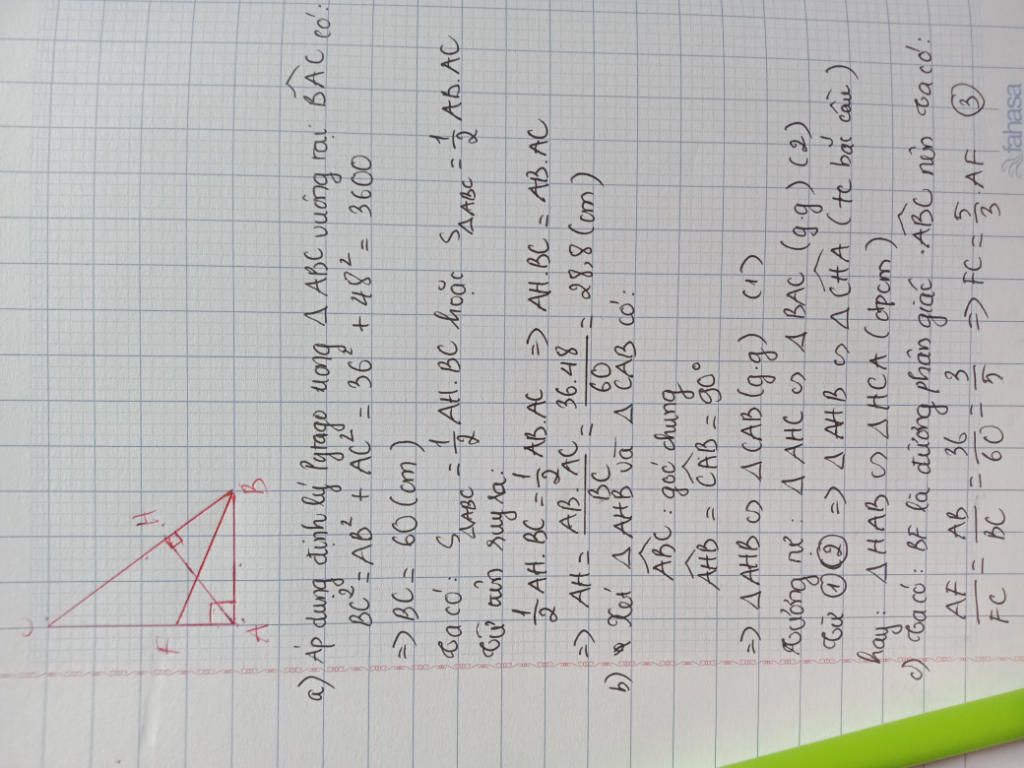 C
H
F
A
B
a) Áp dụng định lý Pytago trong △ABC vuông tại BAC có:
BC² = AB² + AC² = 36² + 48² = 3600
=> BC = 60 (cm)
Ta có: S△ABC = 1/2 AH.BC hoặc S△ABC = 1/2 AB.AC
Từ trên suy ra:
1/2 AH.BC = 1/2 AB.AC => AH.BC = AB.AC
=> AH = AB.AC/BC = 36.48/60 = 28,8 (cm)
b) Xét △AHB và △CAB có:
ABC: góc chung
AHB = CAB = 90°
=> △AHB ∽ △CAB (g.g) (1)
Tương tự: △AHC ∽ △BAC (g.g) (2)
Từ ① ② => △AHB ∽ △CHA (tc bắc cầu)
hay: △HAB ∽ △HCA (đpcm)
c) Ta có: BF là đường phân giác ABC nên ta có:
AF/FC = AB/BC = 36/60 = 3/5 => FC = 5/3 . AF ③
fahasa